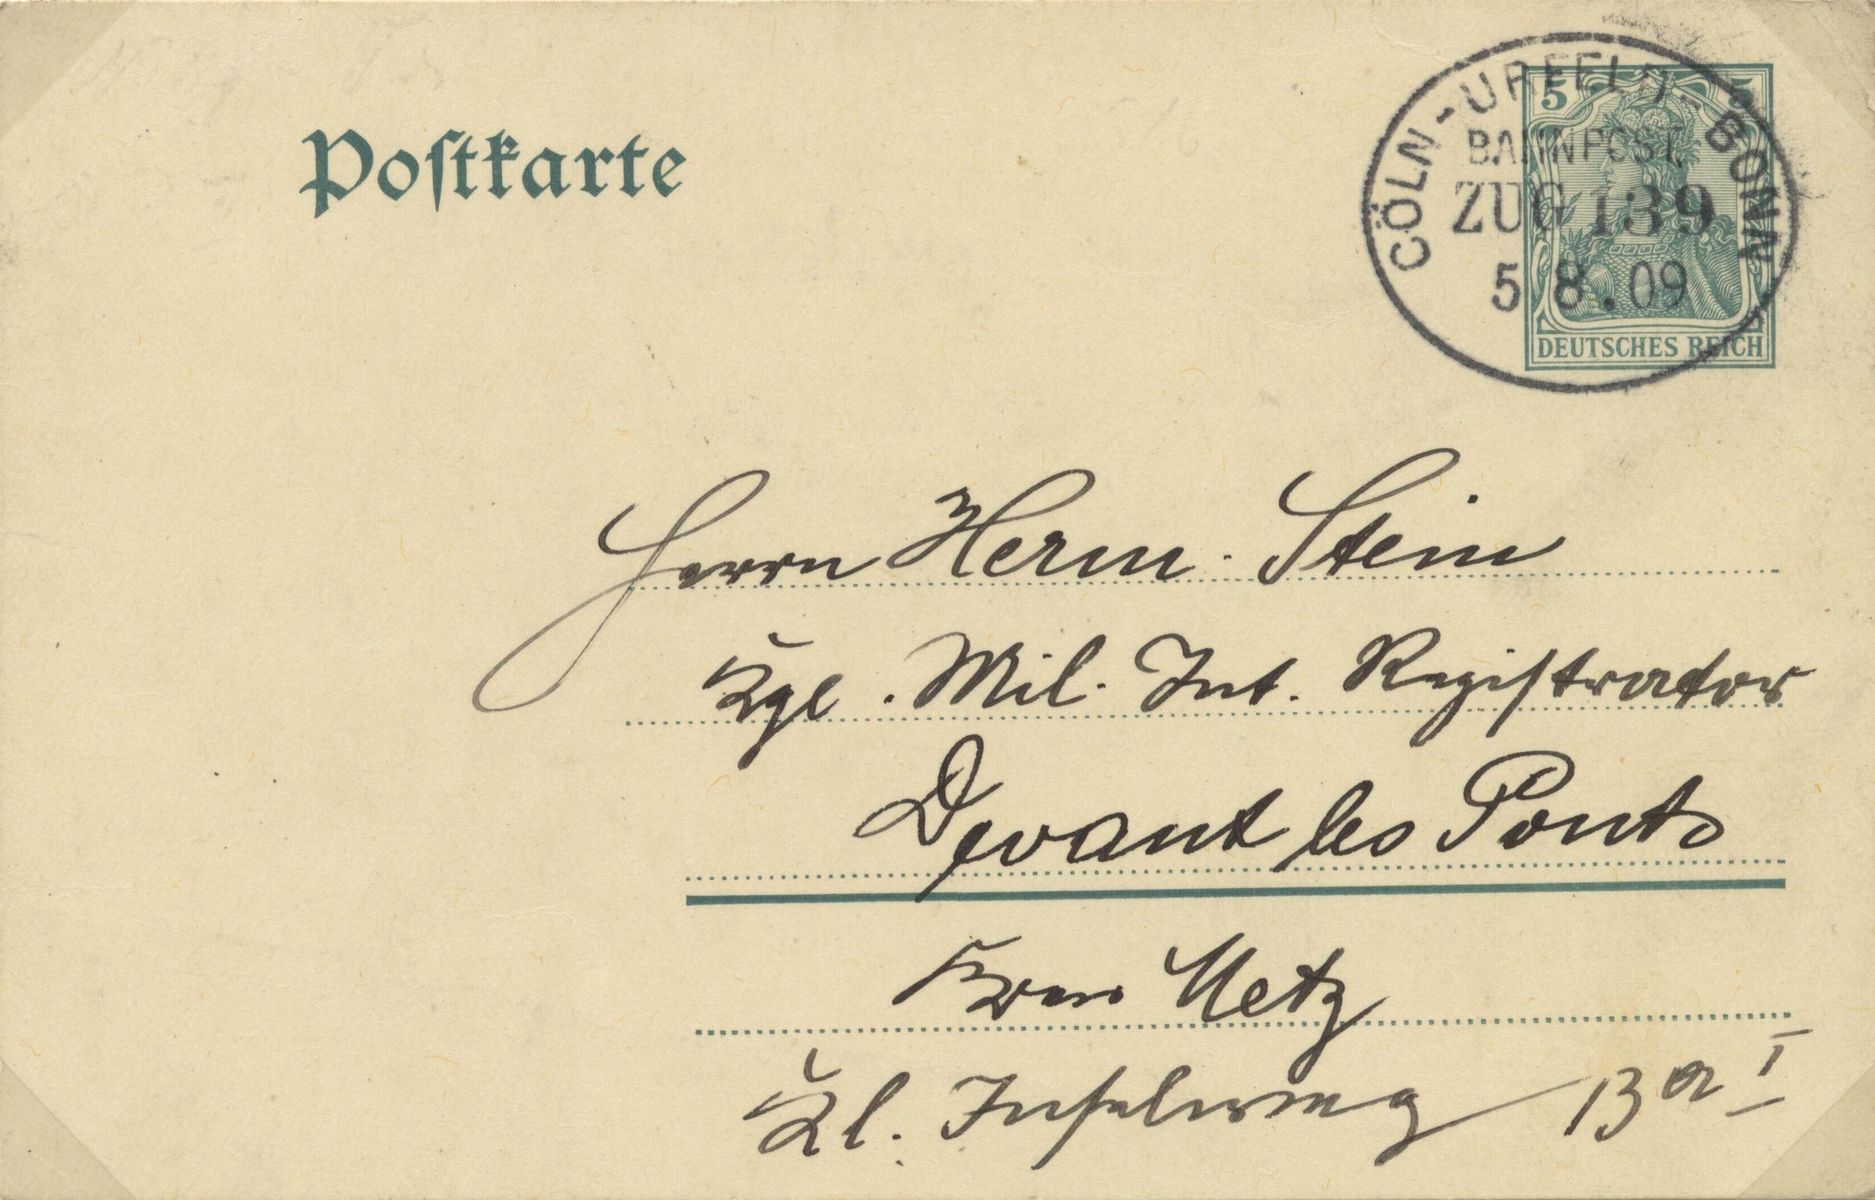 Postkarte
CÖLN-URFELD-BONN
BAHNPOST.
ZUG 139
5 8.09
5 5
DEUTSCHES REICH
Herrn Herm. Stein
Kgl. Mil. Int. Registrator
Devant les Ponts
Metz
Kl. Inselweg 13 a I